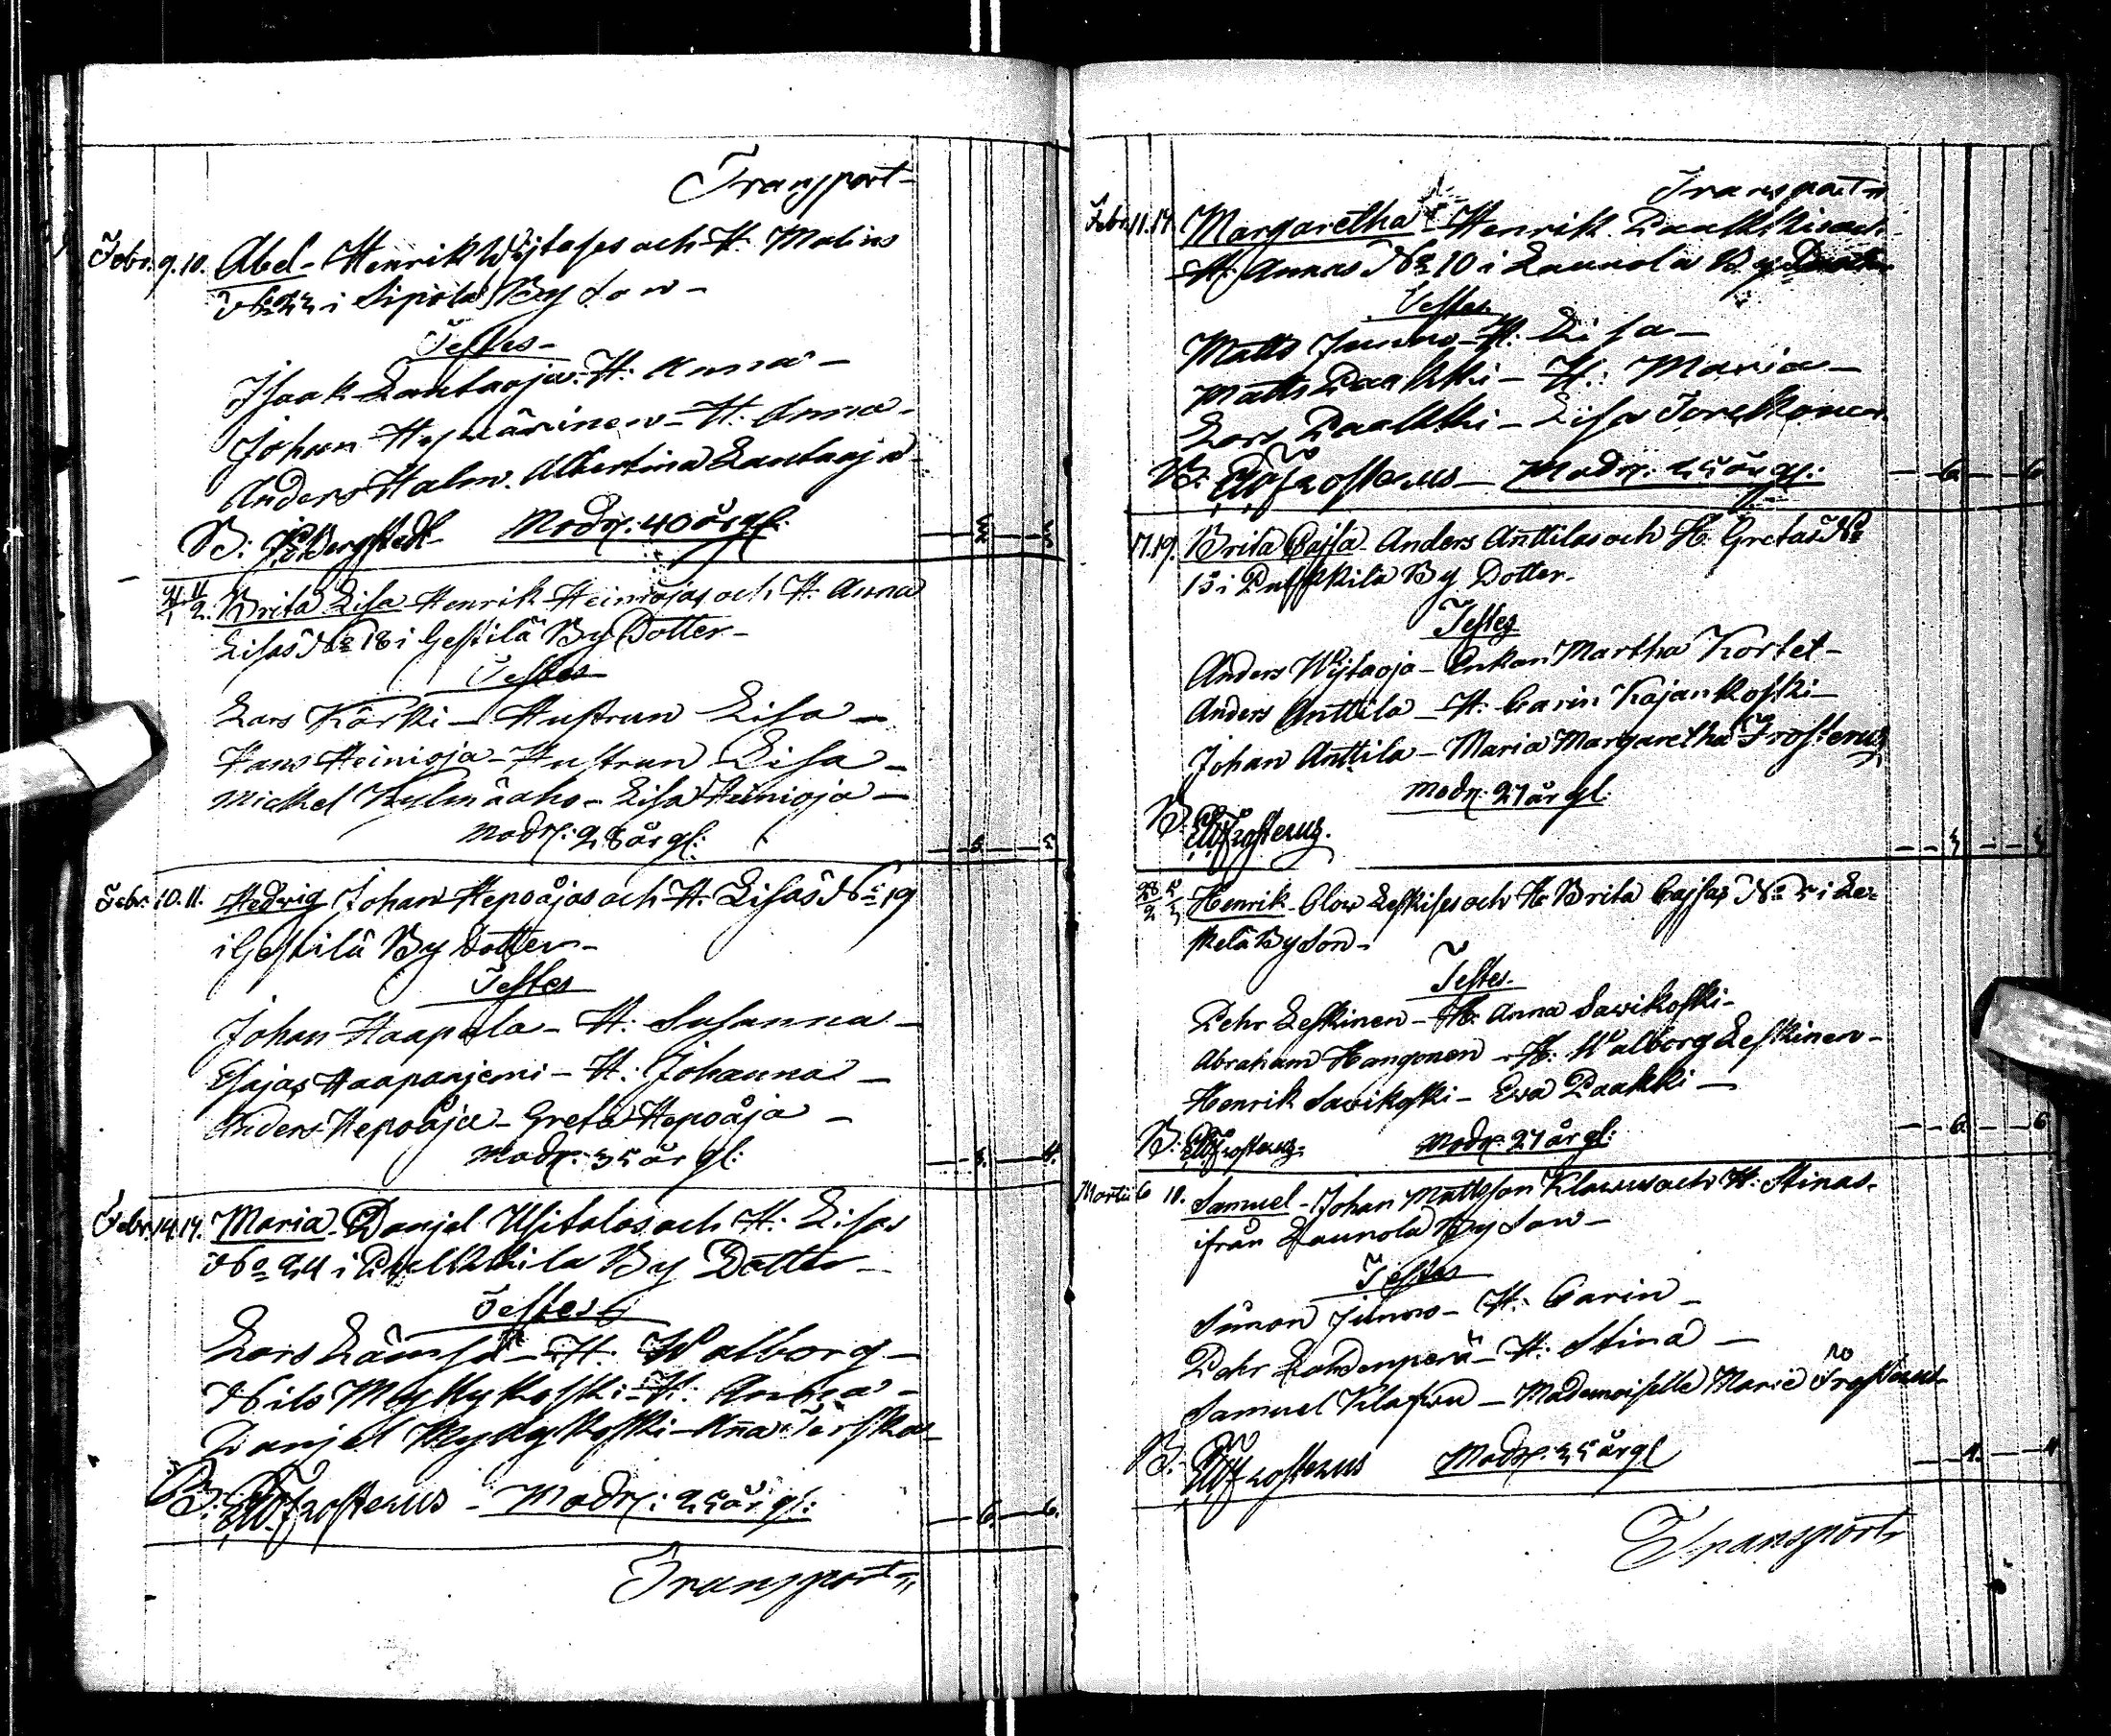 Transport
Febr. 9. 10. Abel - Henrik Wijtases och H. Malins
i Sipola By Son -
Testes -
Isaak Lantaoja - H: Anna -
Johan - H: Anna -
Anders Halm. Albertina Lantaoja -
B: Bergstedt Modr: 40 år gl: 3 3
31/1 11/2. Brita Lisa Henrik Heiniojas och H. Anna
Lisas No 18 i Gestilä By Dotter -
Testes
Lars Kärki - Hustrun Lisa -
Hans Heinioja - Hustrun Lisa -
Mickel Kylmäaho - Lisa Heinioja -
Modr: 28 år gl: 5. 5
Febr. 10. 11. Hedvig Johan Hepoåjas och H. Lisas No 19
i Gestilä By Dotter -
Testes
Johan Haapala - H: Susanna -
Esajas Haapaniemi - H: Johanna -
Anders Hepoåja - Greta Hepoåja -
Modr: 35 år gl: 4.
Febr. 14. 14. Maria - Danjel Usitalos och H: Lisas
No 24 i By Dotter -
Testes
Lars Lämsä - H: Walborg -
Nils Myllykoski - H: Anna -
Danjel Myllykoski - Anna
B: Frosterus - Modr: 25 år gl: 6. 6.
Transport
Transport
Febr. 11. 14. Margaretha - Henrik Paakkis och
H: Annas No 10 i Launola By Dotter
Testes
Matts Junno - H: Lisa -
Matts Paakki - H: Maria -
Lars Paakki - Lisa
B: Frosterus - Modr: 25 år gl: 6 6
17. 19. Brita Cajsa - Anders Anttilas och H. Gretas No
13 i Pulkkila By Dotter -
Testes
Anders Wijtaoja - Enkan Martha Kortet -
Anders Anttila - H. Carin Kajankoski -
Johan Anttila - Maria Margaretha Frosterus
Modr: 27 år gl:
B: Frosterus.
28/2 Henrik - Olow Leskises och H: Brita Cajsas No i Les-
kelä By Son -
Testes -
Pehr Leskinen - H: Anna Sawikoski -
Abraham Kangonen - H: Walborg Leskinen -
Henrik Sawikoski - Ewa Paakki -
B: Frosterus Modr: 27 år gl: 6 6
Martii 6 10. Samuel - Johan Mattsson och H: Stinas -
ifrån Launola By Son -
Testes
Simon Junno - H: Carin -
Pehr Lahdenperä - H: Stina -
Samuel - Mademoiselle Maria Frosterus
B: Frosterus Modr: 35 år gl 4. 4
Transport